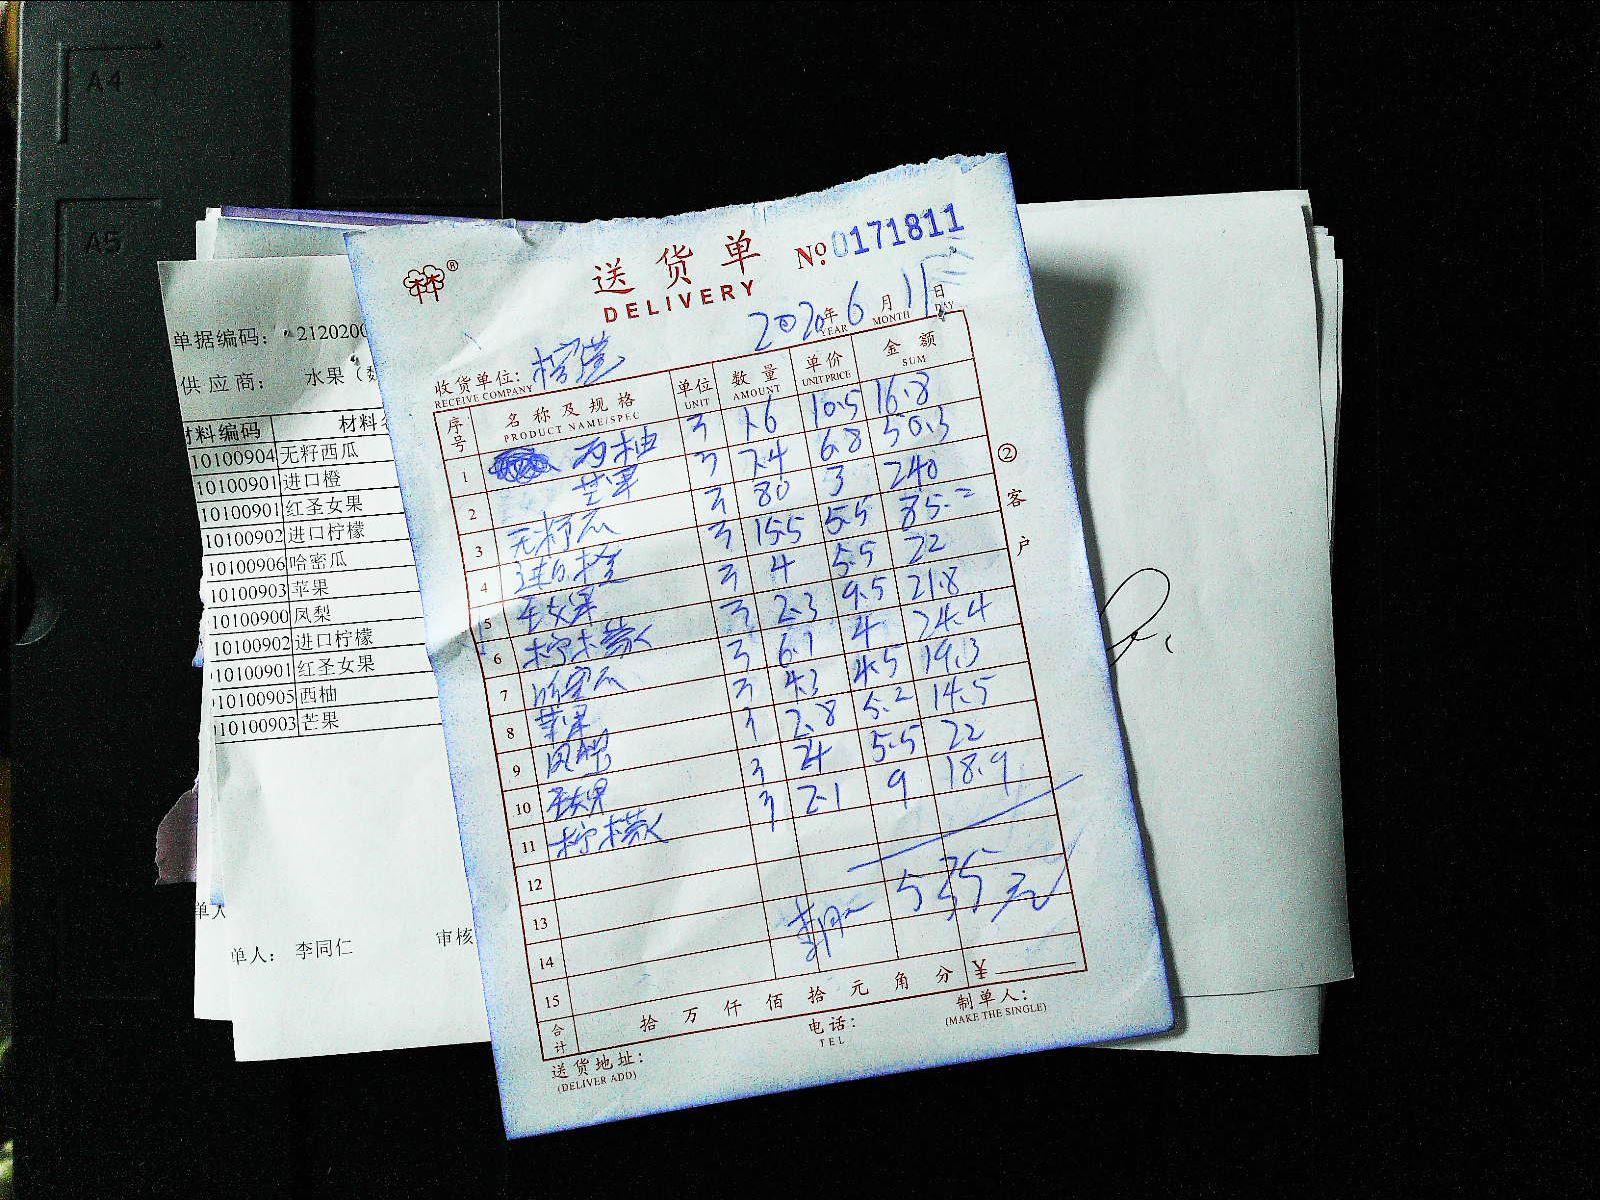 A4
A5
单据编码: 2120200
供应商: 水果
材料编码 材料
10100904 无籽西瓜
10100901 进口橙
10100901 红圣女果
10100902 进口柠檬
10100906 哈密瓜
10100903 苹果
10100900 凤梨
10100902 进口柠檬
10100901 红圣女果
10100905 西柚
10100903 芒果
单人
单人: 李同仁 审核
送货单
DELIVERY
№ 0171811
2020年 6月 11日
YEAR MONTH DAY
收货单位:
RECEIVE COMPANY
序号 名称及规格 单位 数量 单价 金额
PRODUCT NAME/SPEC UNIT AMOUNT UNIT PRICE SUM
1 西柚 1.6 10.5 16.8
2 芒果 7.4 6.8 50.3
3 无籽瓜 80 3 240
4 进口橙 15.5 5.5 85.2
5 圣女果 4 5.5 22
6 柠檬 2.3 9.5 21.8
7 哈密瓜 6.1 4 24.4
8 苹果 4.3 4.5 19.3
9 凤梨 2.8 5.2 14.5
10 圣女果 4 5.5 22
11 柠檬 2.1 9 18.9
12
13 535元
14
15
合计 拾 万 仟 佰 拾 元 角 分 ¥
②客户
送货地址: 电话: 制单人:
(DELIVER ADD) TEL (MAKE THE SINGLE)